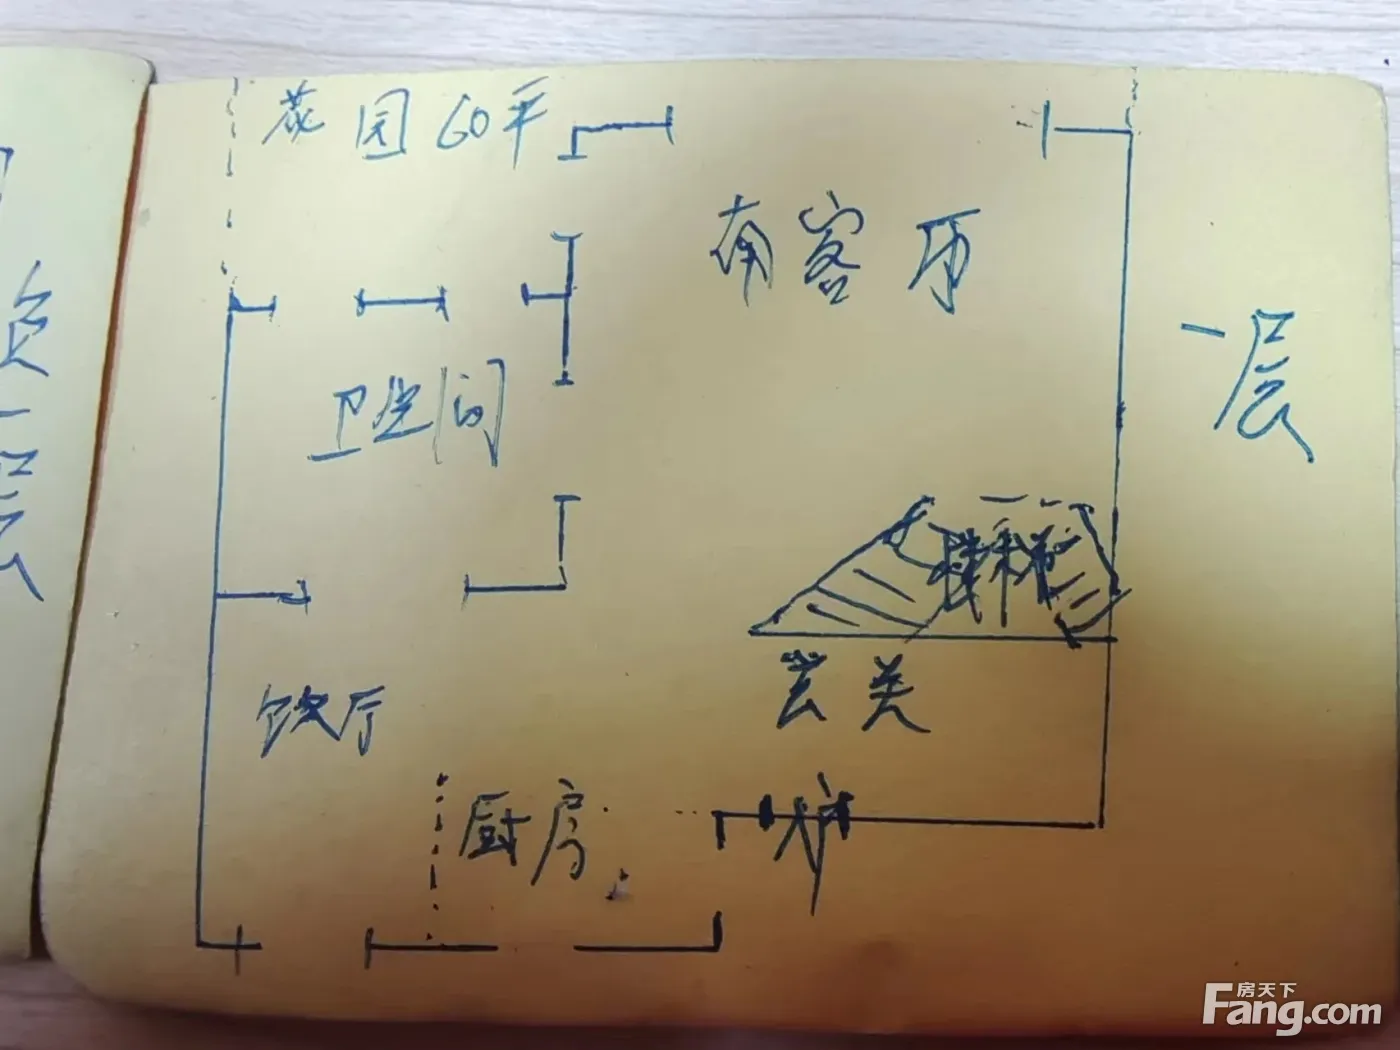 花园60平
南客厅
一层
卫生间
楼梯
餐厅
玄关
厨房
负一层
房天下
Fang.com